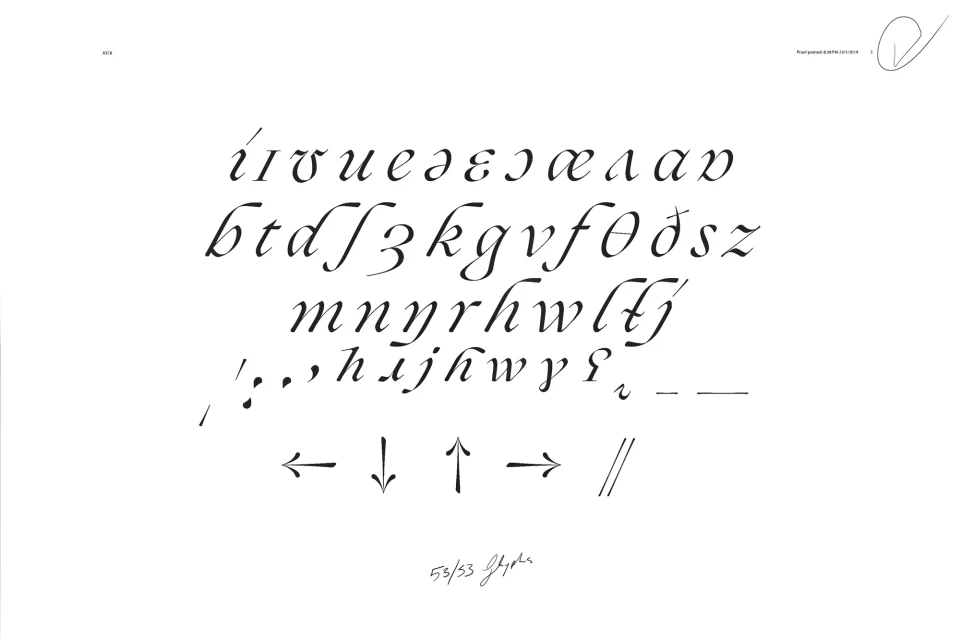 ASCII
Proof printed: 8:39 PM 23/1/2019 5
í ɪ ʊ u e ə ɛ ɔ æ ʌ ɑ ɒ
b t d ʃ ʒ k g v f θ ð s z
m n ŋ r h w l ɫ j
ˈ ˌ : . ʼ ʰ ʴ ʲ ʱ ʷ ˠ ˤ ˞ – —
← ↓ ↑ → //
53/53 Glyphs